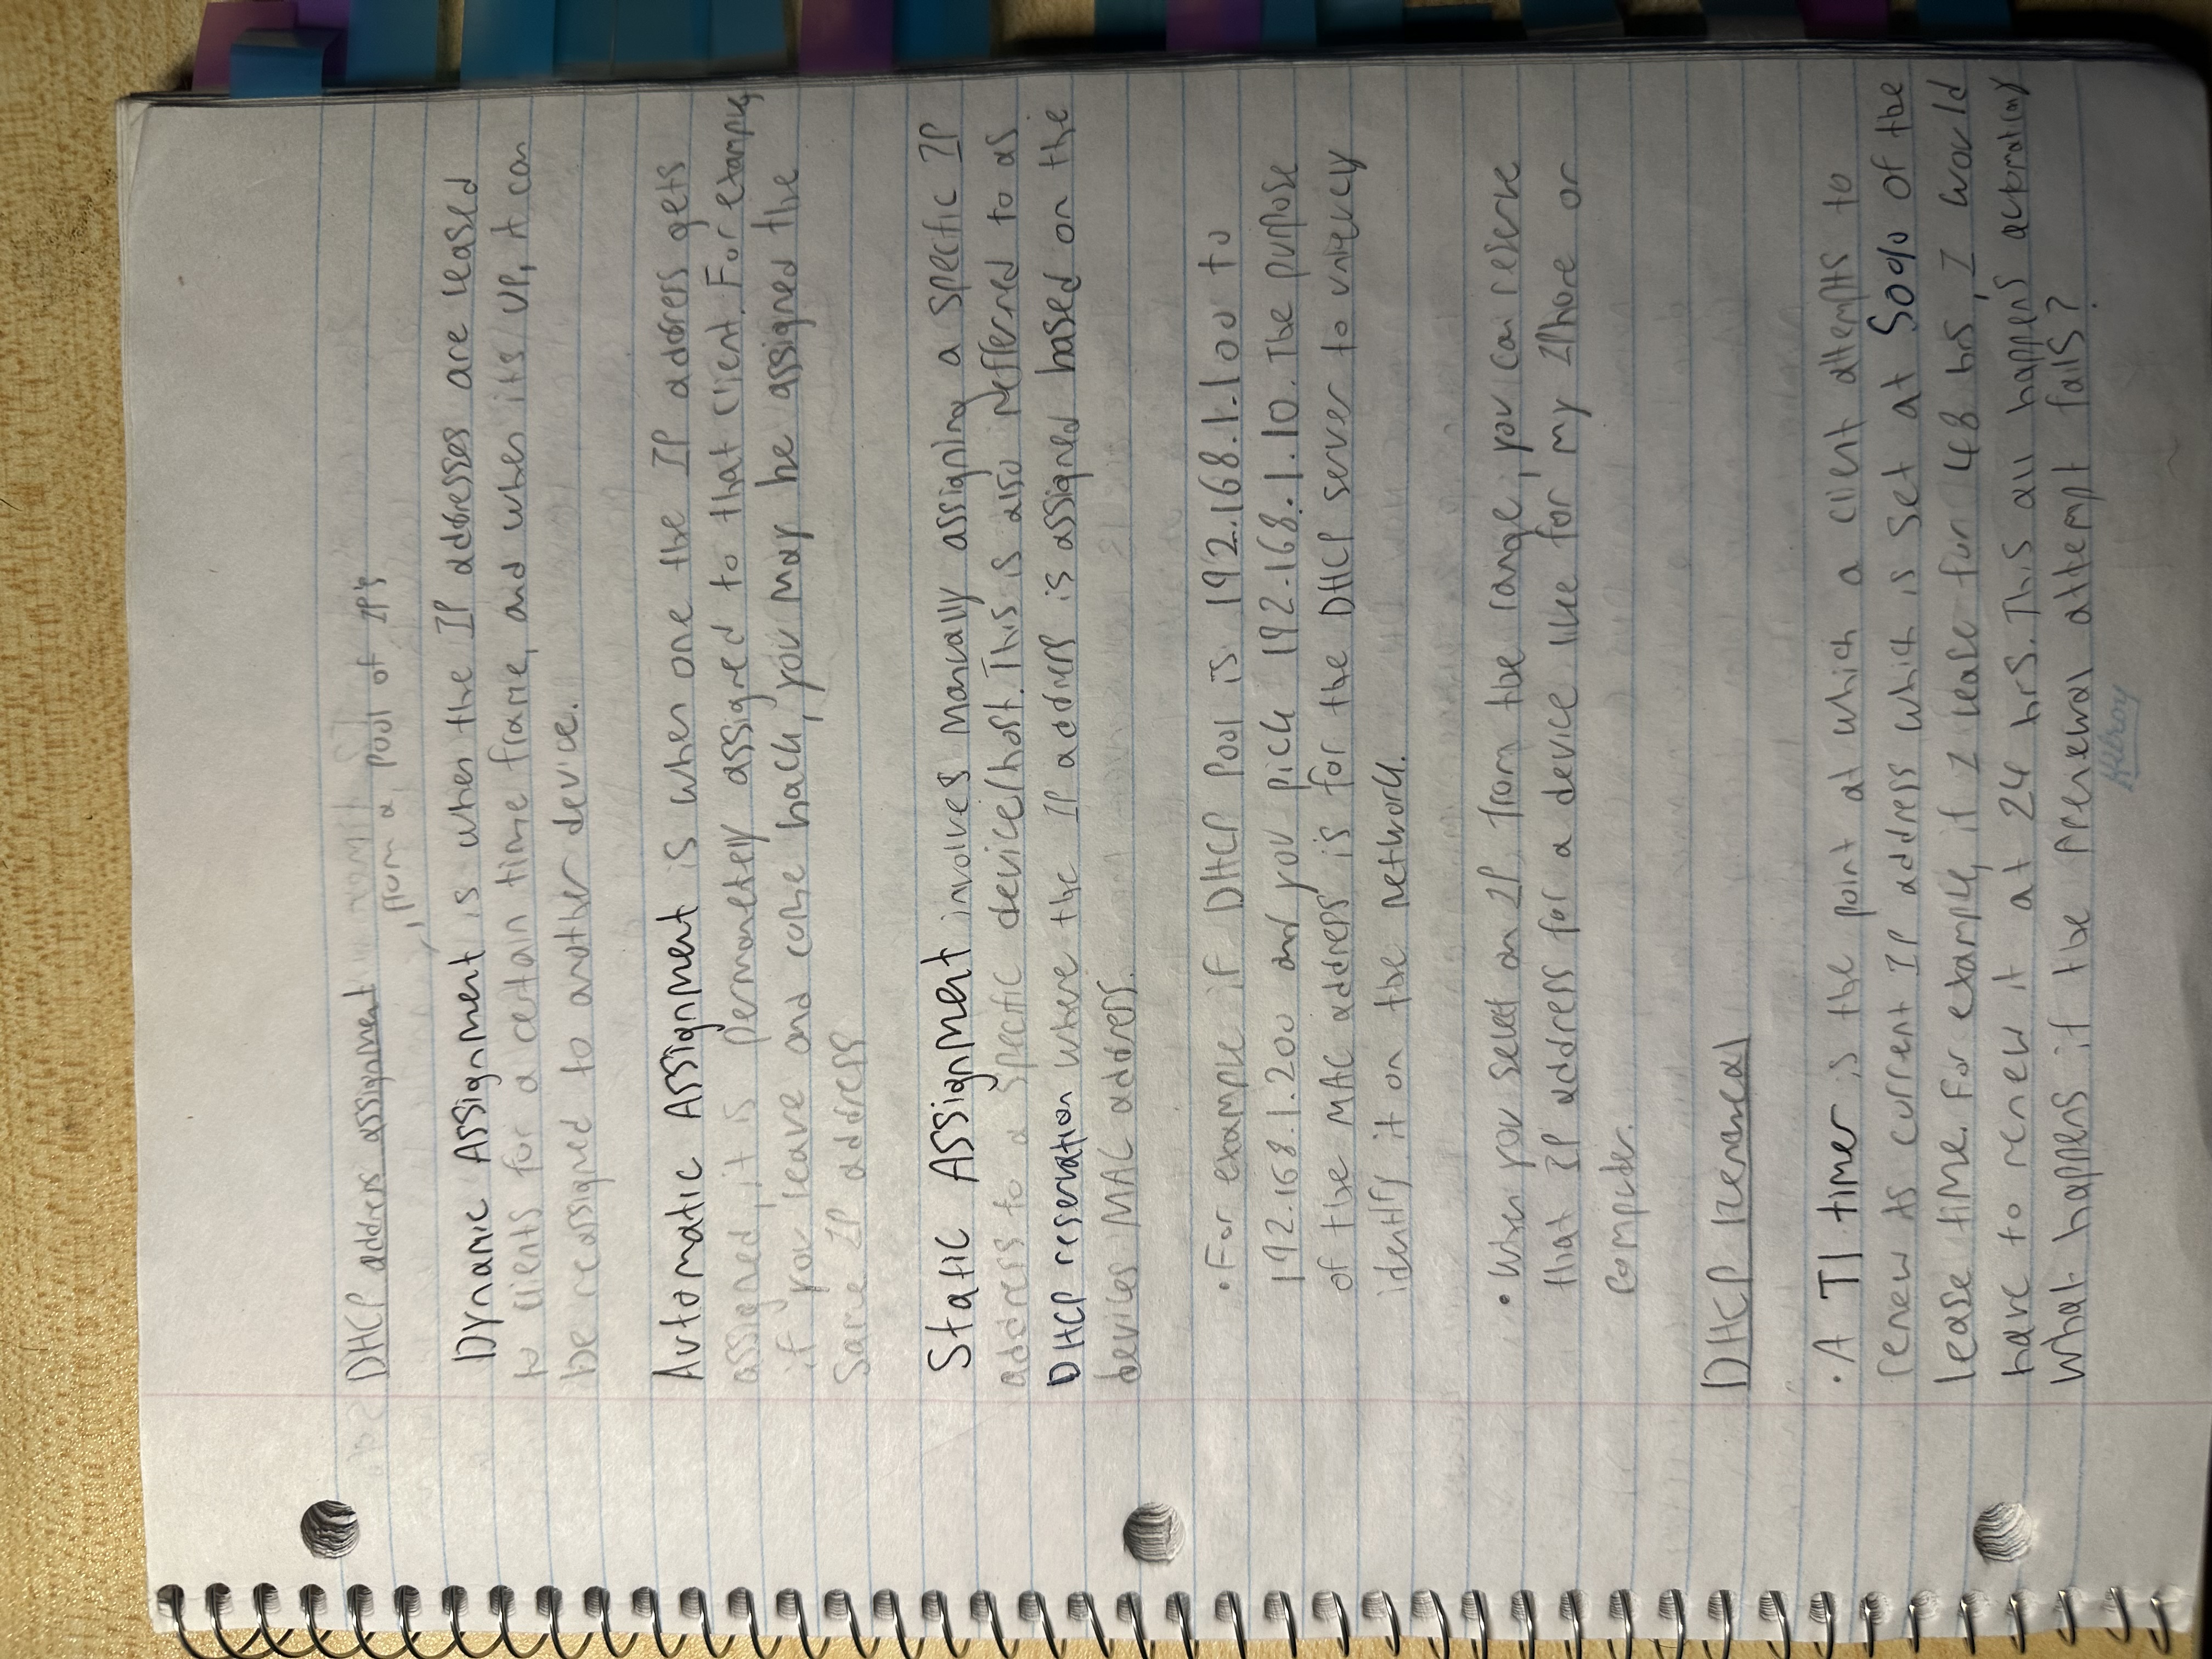 DHCP address assignment
, from a pool of IP's
Dynamic Assignment is when the IP addresses are leased
to clients for a certain time frame, and when its up, it can
be reassigned to another device.
Automatic Assignment is when one the IP address gets
assigned, it is permanetely assigned to that client. For example,
if you leave and come back, you may be assigned the
same IP address
Static Assignment involves manually assigning a specfic IP
address to a specific device/host. This is also reffered to as
DHCP reservation where the IP address is assigned based on the
devices MAC address.
• For example if DHCP Pool is 192.168.1.100 to
192.168.1.200 and you pick 192.168.1.10. The purpose
of the MAC address is for the DHCP server to uniquely
identify it on the network.
• When you select an IP from the range, you can reserve
that IP address for a device like for my IPhone or
computer.
DHCP Renewal
• A T1 timer is the point at which a client attempts to
renew its current IP address which is set at 50% of the
lease time. For example, if I lease for 48 hrs, I would
have to renew it at 24 hrs. This all happens automatically
What happens if the renewal attempt fails?
Hilroy